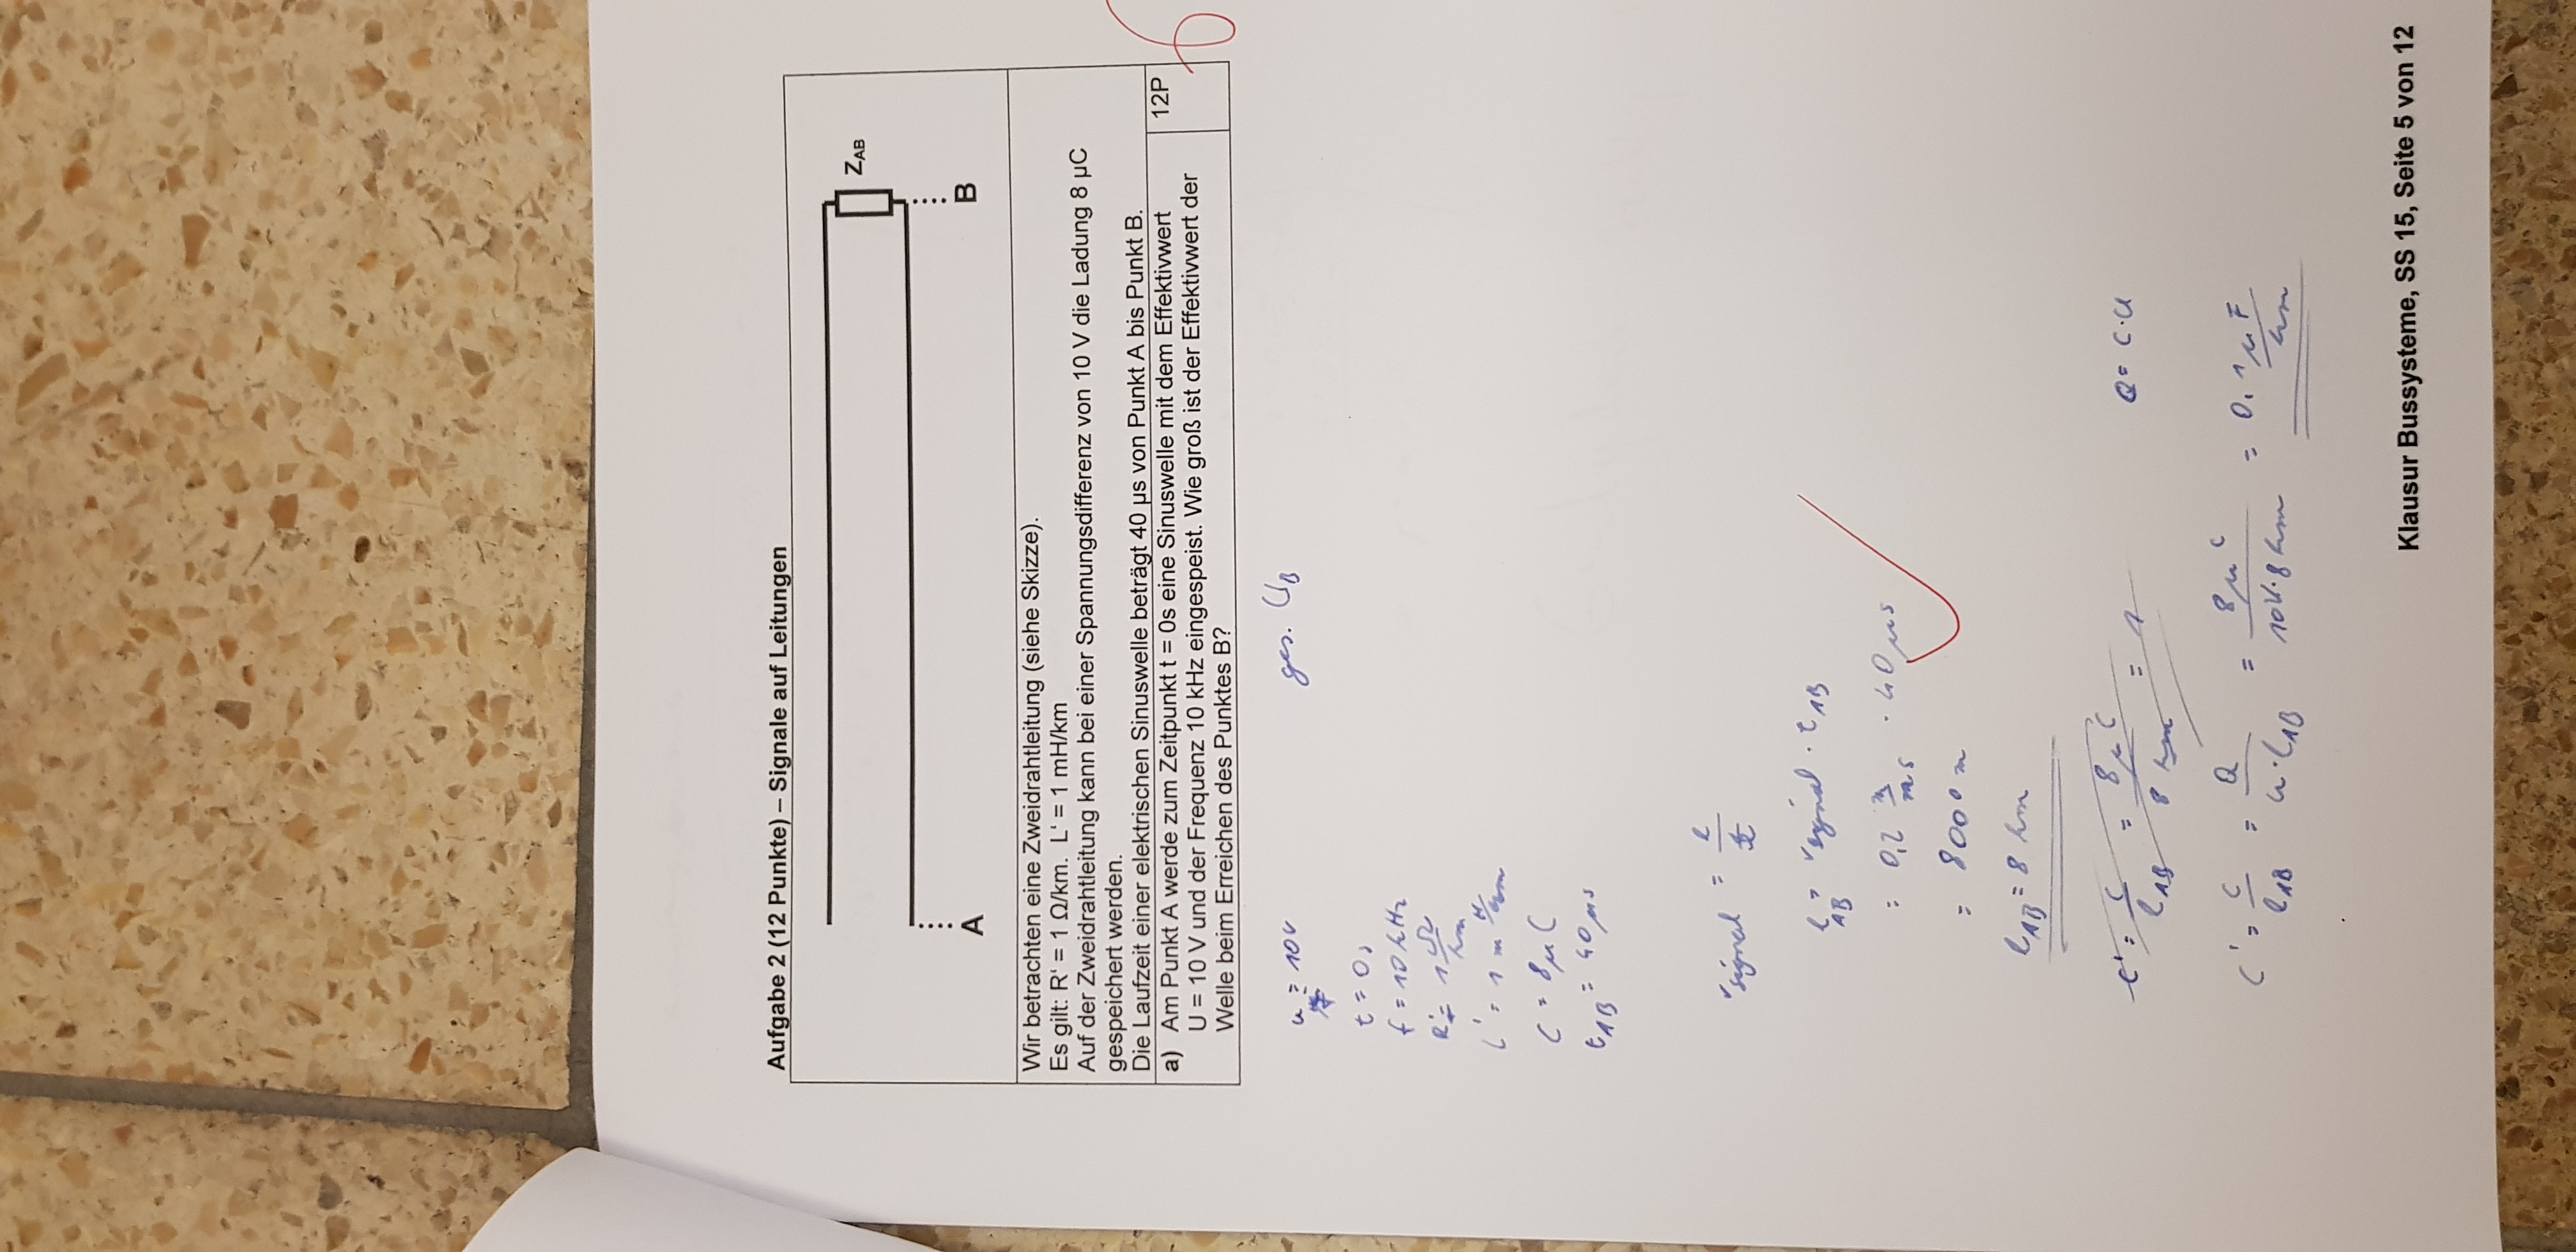 Aufgabe 2 (12 Punkte) – Signale auf Leitungen
Z_AB
A
B
Wir betrachten eine Zweidrahtleitung (siehe Skizze).
Es gilt: R‘ = 1 Ω/km. L‘ = 1 mH/km
Auf der Zweidrahtleitung kann bei einer Spannungsdifferenz von 10 V die Ladung 8 µC
gespeichert werden.
Die Laufzeit einer elektrischen Sinuswelle beträgt 40 µs von Punkt A bis Punkt B.
a) Am Punkt A werde zum Zeitpunkt t = 0s eine Sinuswelle mit dem Effektivwert
12P
U = 10 V und der Frequenz 10 kHz eingespeist. Wie groß ist der Effektivwert der
Welle beim Erreichen des Punktes B?
u = 10V
ges. U_B
t = 0s
f = 10 kHz
R' = 1 Ω/km
L' = 1 m H/km
C = 8 µC
t_AB = 40 µs
v signal = l/t
l_AB = v signal · t_AB
= 0,2 m/ms · 40 µs
= 8000 m
l_AB = 8 km
C' = C/l_AB = 8µC/8 km = 1
Q = C·U
C' = C/l_AB = Q/(u·l_AB) = 8µC/(10V·8km) = 0,1 µF/km
Klausur Bussysteme, SS 15, Seite 5 von 12